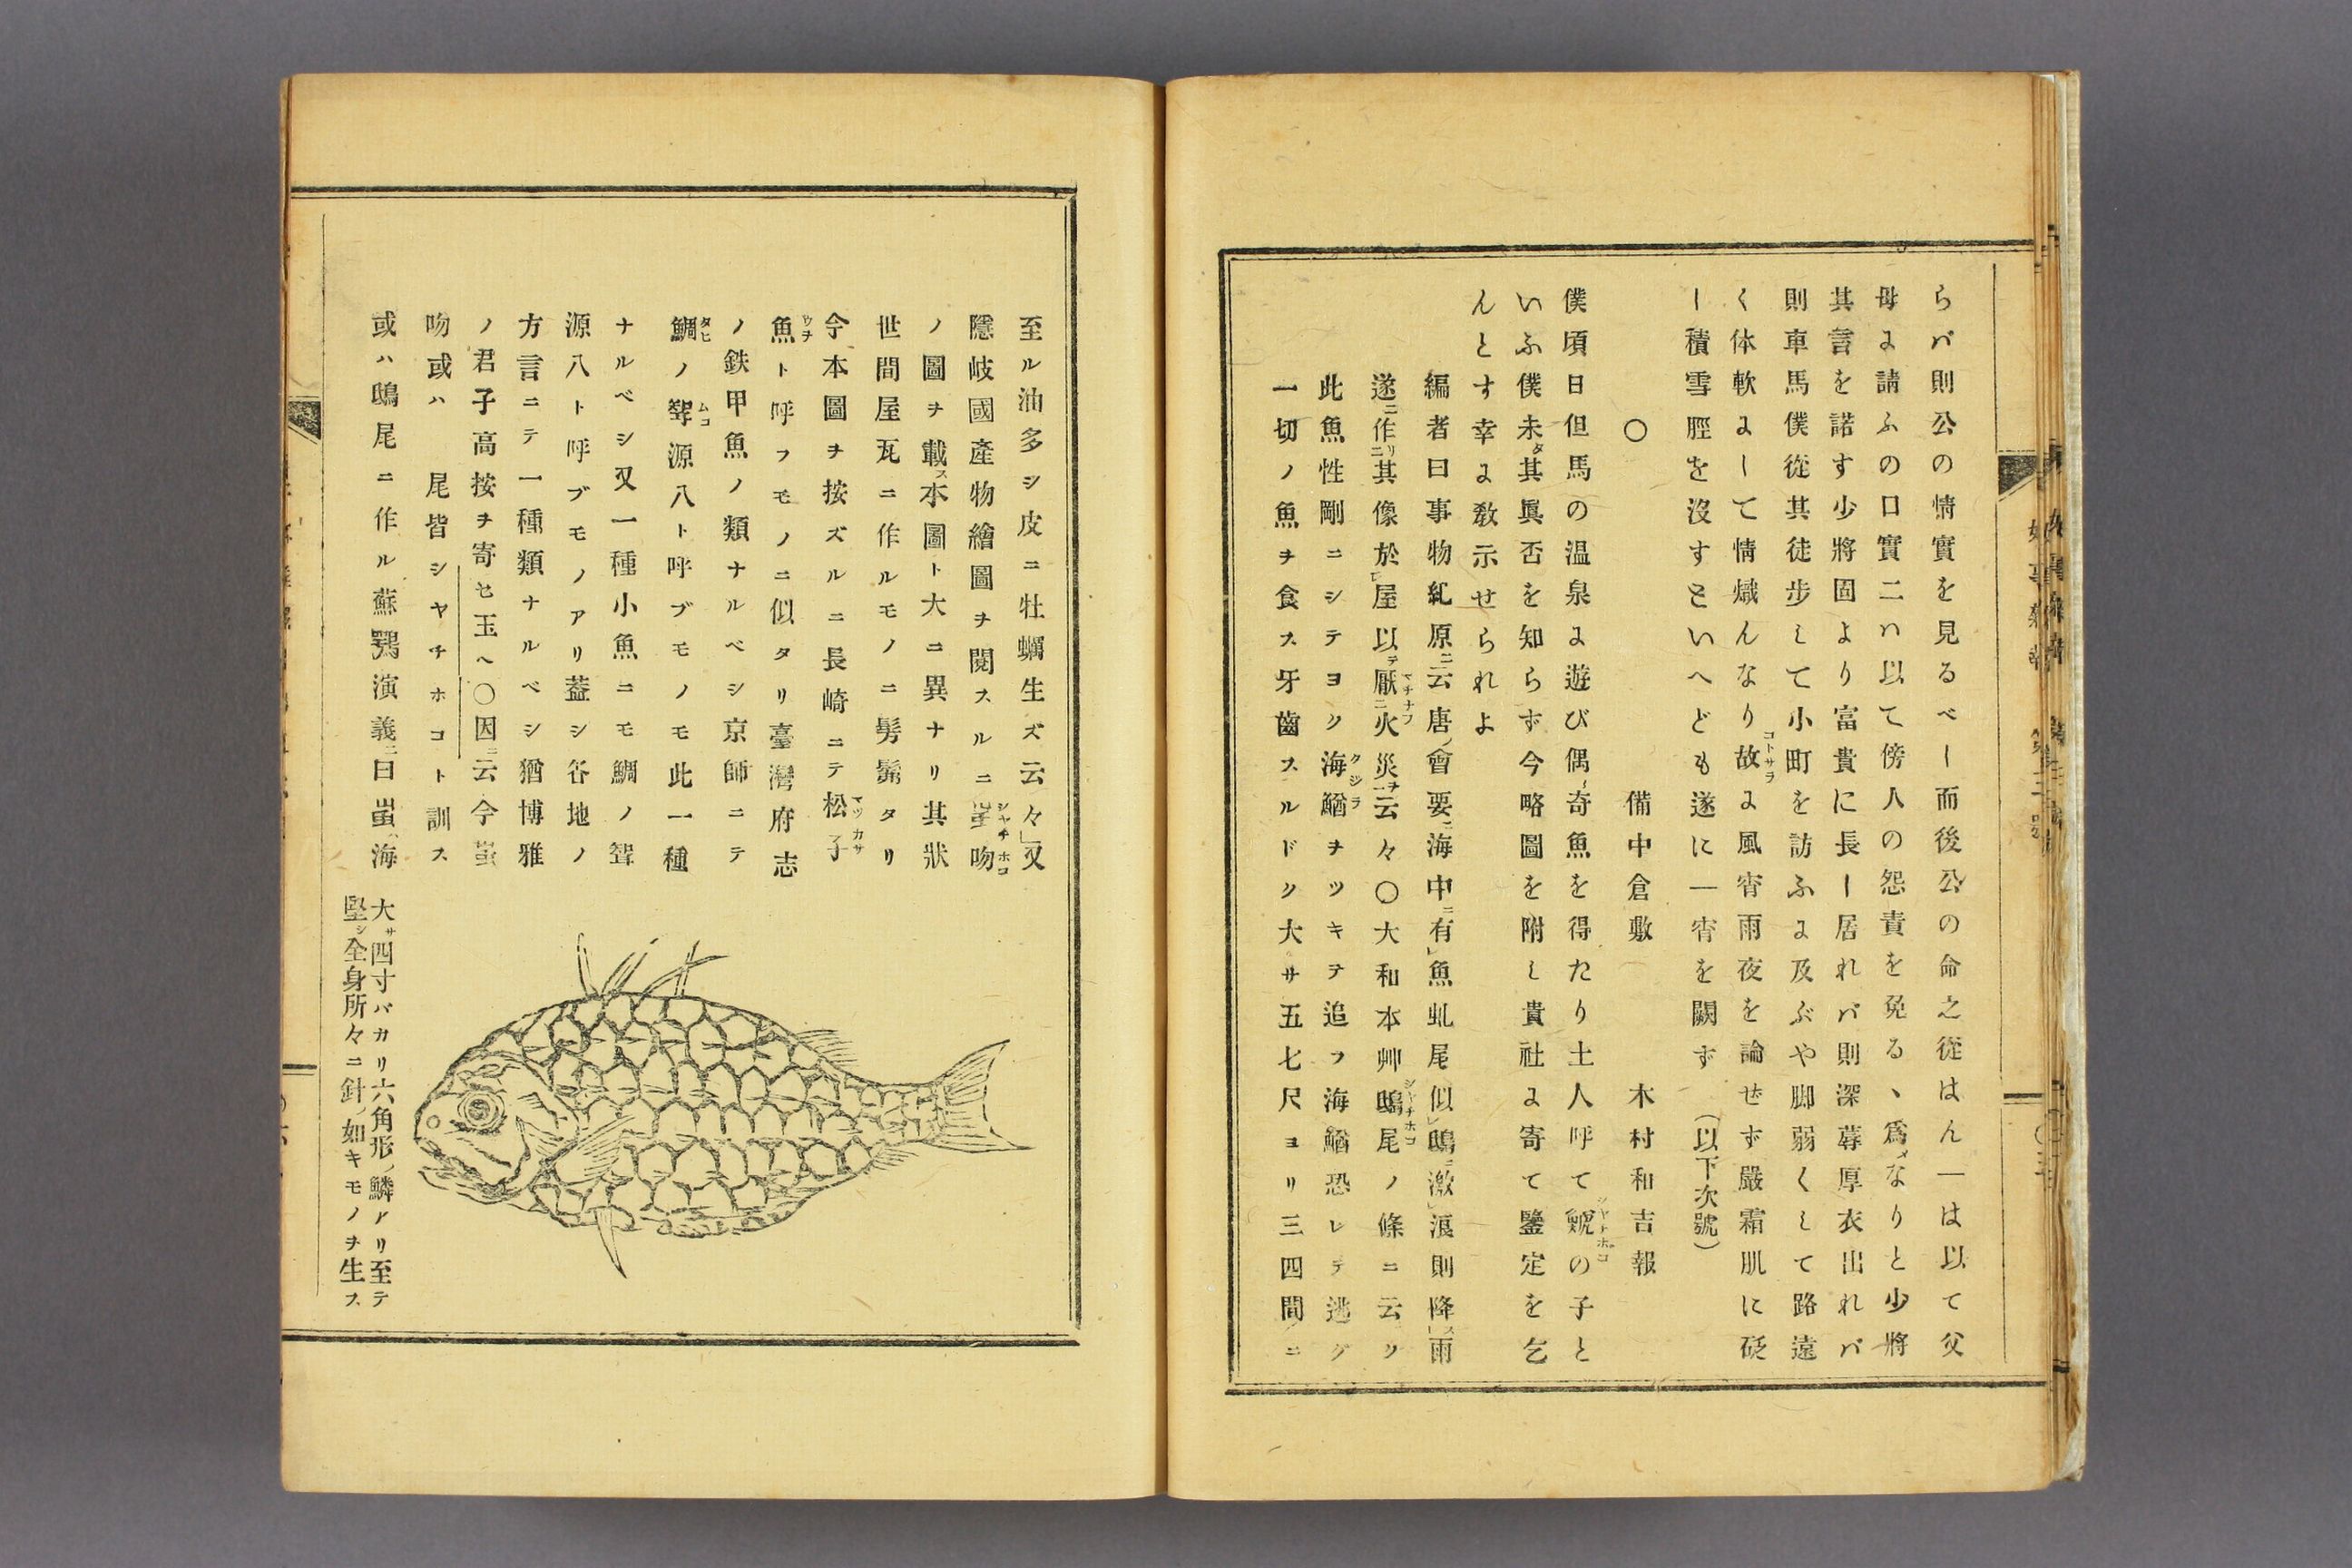 らバ則公の情實を見るべー而後公の命之從はん一は以て父
母よ請ふの口實二ハ以て傍人の怨責を免る丶爲メなりと少將
其言を諾す少將固より富貴に長ー居れバ則深蓐厚衣出れバ
則車馬僕從其徒步して小町を訪ふよ及ぶや脚弱くして路遠
く体軟よーて情熾んなり故コトサラよ風宵雨夜を論せず嚴霜肌に砭
ー積雪脛を沒すといへども遂に一宵を闕ず（以下次號）
〇　備中倉敷　木村和吉報
僕頃日但馬の温泉よ遊び偶奇魚を得たり土人呼て鯱シヤトホコの子と
いふ僕未タ其眞否を知らず今略圖を附し貴社よ寄て鑒定を乞
んとす幸よ敎示せられよ
編者曰事物紀原ニ云唐ノ會要ニ海中ニ有レ魚虬尾似レ鴟ニ激レ浪則降レス雨
遂ニ作リニ其像於レ屋以テ厭マチナフニ火災ヲ一云々〇大和本艸鴟尾シヤチホコノ條ニ云ク
此魚性剛ニシテヨク海鰌クジラヲツキテ追フ海鰌恐レテ逃グ
一切ノ魚ヲ食ス牙齒スルドク大サ五七尺ヨリ三四間ニ
至ル油多シ皮ニ牡蠣生ズ云々」又
隱岐國產物繪圖ヲ閱スルニ蚩吻シヤチホコ
ノ圖ヲ載ス本圖ト大ニ異ナリ其狀
世間屋瓦ニ作ルモノニ髣髴タリ
今本圖ヲ按ズルニ長崎ニテ松子マツカサ
魚ウヲト呼フモノニ似タリ臺灣府志
ノ鉄甲魚ノ類ナルベシ京師ニテ
鯛タヒノ聟ムコ源八ト呼ブモノモ此一種
ナルベシ又一種小魚ニモ鯛ノ聟
源八ト呼ブモノアリ葢シ各地ノ
方言ニテ一種類ナルベシ猶博雅
ノ君子高按ヲ寄セ玉ヘ〇因ニ云今蚩
吻或ハ　尾皆シヤチホコト訓ス
或ハ鴟尾ニ作ル蘇鶚演義ニ曰蚩ハ海
大サ四寸バカリ六角形ノ鱗アリ至テ
堅シ全身所々ニ針ノ如キモノヲ生ス